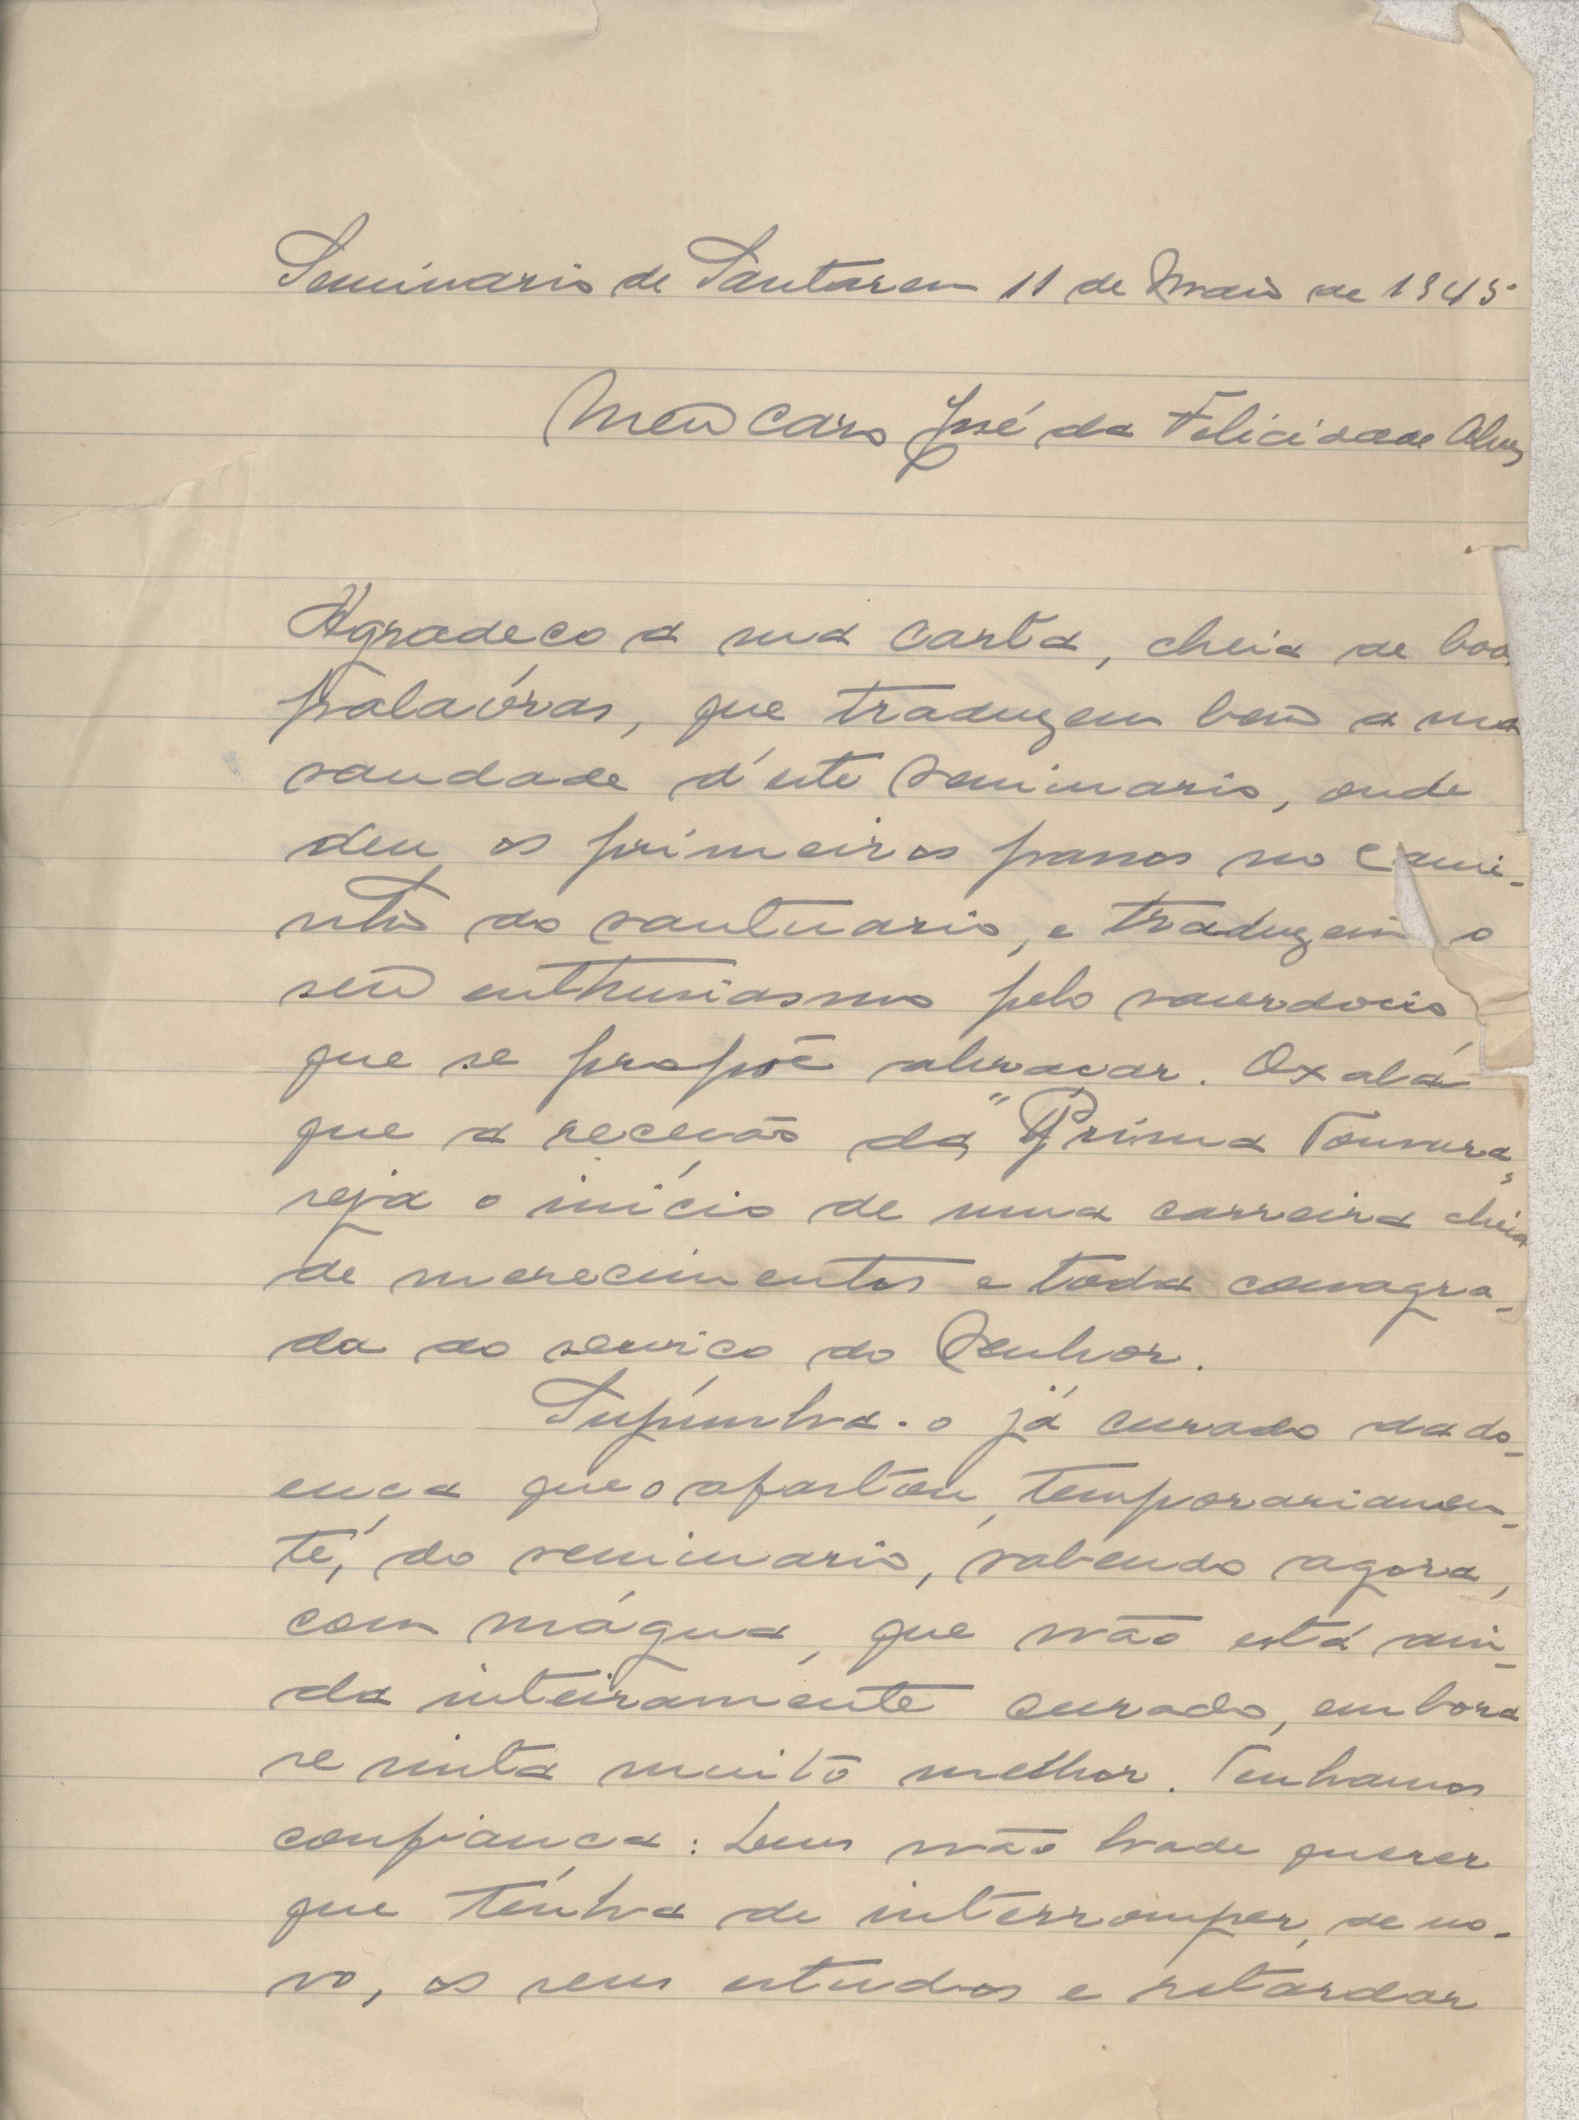 Seminario de Santarem 11 de Maio de 1945
Meu caro José da Felicidade Alves
Agradeço a sua carta, cheia de boas
palavras, que traduzem bem a sua
saudade d'este seminario, onde
deu os primeiros passos no cami-
nho do santuario, e traduzem o
seu enthusiasmo pelo sacerdocio
que se propoē abraçar. Oxalá
que a receção da "Prima Tonsura"
seja o início de uma carreira cheia
de merecimentos e toda consagra-
da ao serviço do Senhor.
Supúnha-o já curado da do-
ença que o afastou, temporariamen-
te, do seminario, sabendo agora,
com mágua, que não está ain-
da inteiramente curado, embora
se sinta muito melhor. Tenhamos
confiança: Deus não hade querer
que tenha de interromper, de no-
vo, os seus estudos e retardar